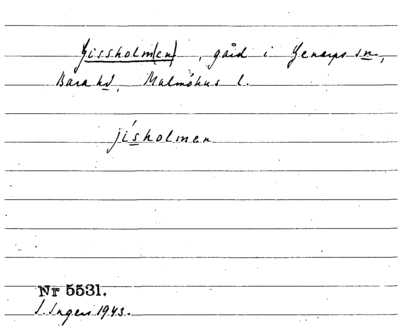 Gissholm(en), gård i Genarps sn,
Bara hd, Malmöhus l.
jísholmen
Nr 5531.
I. Ingers 1943.